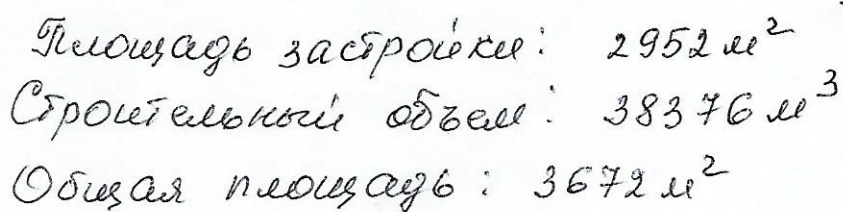 Площадь застройки: 2952 м²
Строительный объем: 38376 м³
Общая площадь: 3672 м²